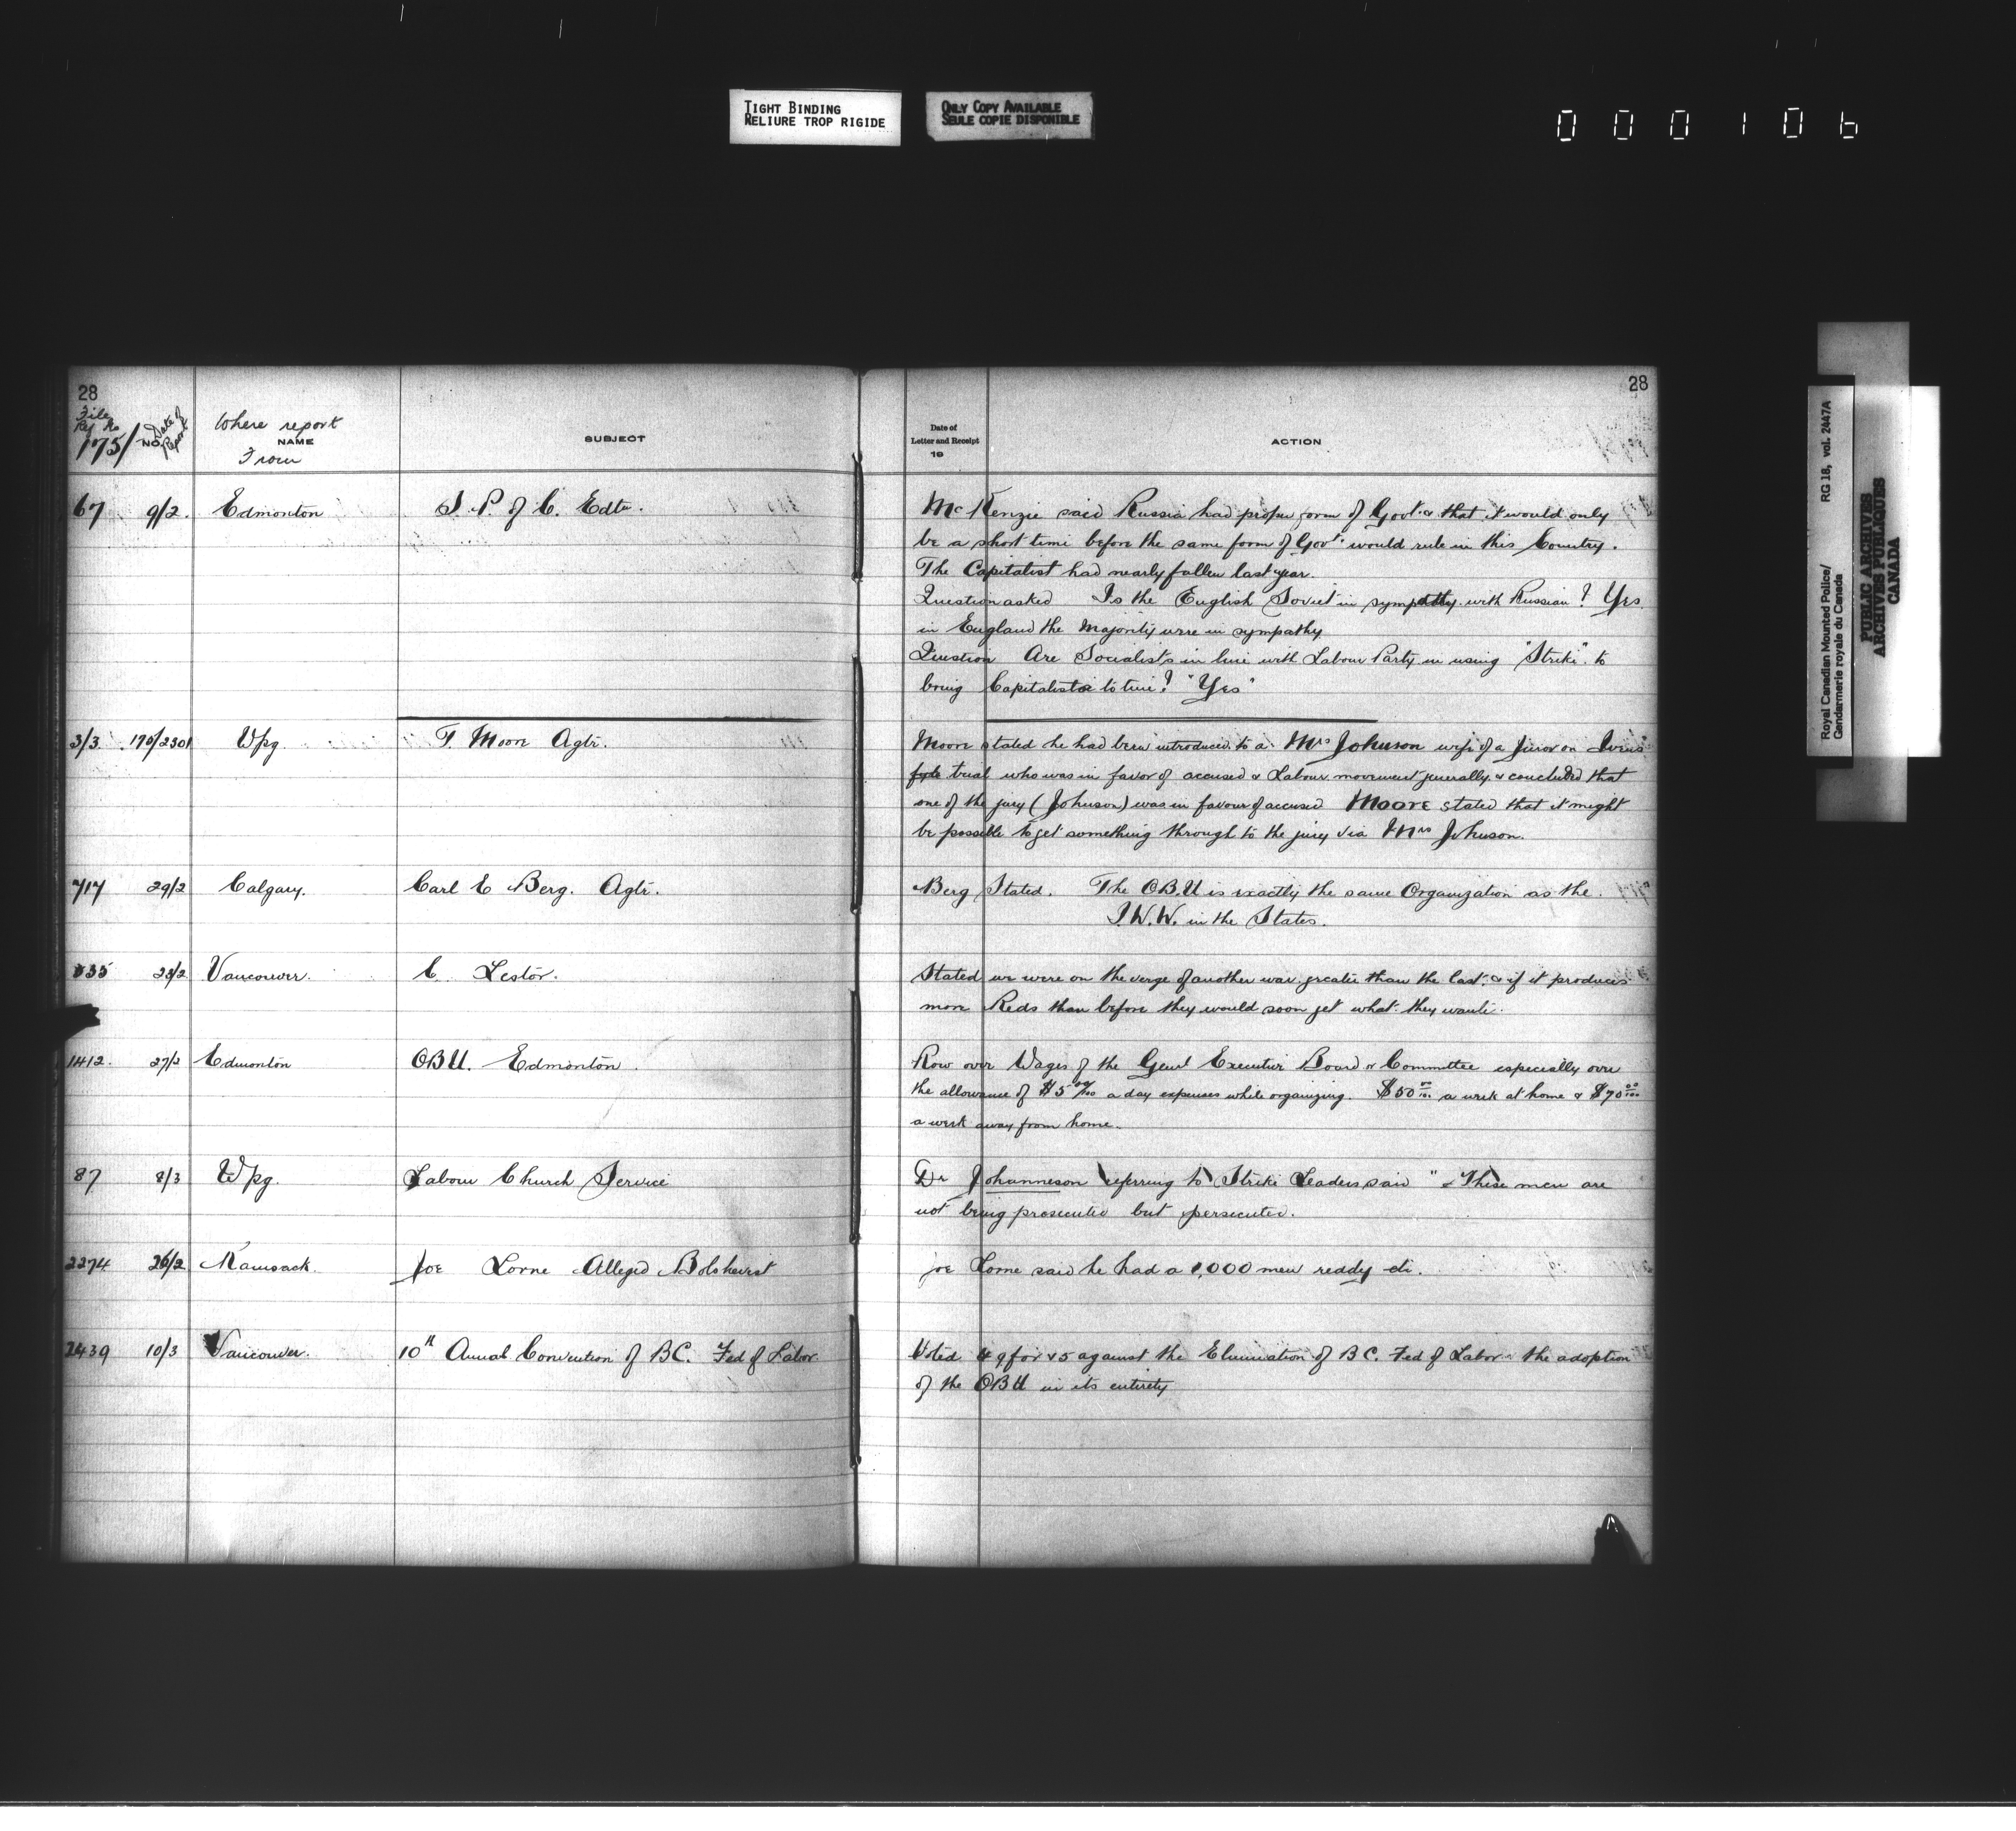 TIGHT BINDING
RELIURE TROP RIGIDE
ONLY COPY AVAILABLE
SEULE COPIE DISPONIBLE
000106
28
File
Reg No
175/ NO. Date of Report
Where report
NAME
From
SUBJECT
67 9/2. Edmonton S. P. of C. Edtn.
3/3 175/2301 Wpg. T. Moore Agtr.
717 29/2 Calgary. Carl E Berg. Agtr.
835 23/2 Vancouver. C. Lestor.
1412. 27/2 Edmonton OBU. Edmonton.
87 8/3 Wpg. Labour Church Service
2274 26/2 Kamsack. Joe Lorne Alleged Bolshevist
2439 10/3 Vancouver. 10th Annual Convention of BC. Fed of Labor
28
Date of
Letter and Receipt
19
ACTION
McKenzie said Russia had proper form of Govt. & that it would only
be a short time before the same form of Govt. would rule in this Country.
The Capitalist had nearly fallen last year.
Question asked Is the English Soviet in sympathy with Russian? Yes.
in England the Majority were in sympathy
Question Are Socialists in line with Labour Party in using "Strike" to
bring Capitalists to time? "Yes"
Moore stated he had been introduced to a Mrs Johnson wife of a juror on Ivens
trial who was in favor of accused & Labour movement generally, & concluded that
one of the jury (Johnson) was in favour of accused Moore stated that it might
be possible to get something through to the jury via Mrs Johnson.
Berg Stated. The OBU is exactly the same Organization as the
I.W.W. in the States.
Stated we were on the verge of another war greater than the last, & if it produces
more Reds than before they would soon get what they wanted.
Row over Wages of the Genl Executive Board & Committee especially over
the allowance of $5 00/100 a day expenses while organizing. $50 00/100 a week at home & $70 00/100
a week away from home.
Dr Johanneson referring to Strike Leaders said " These men are
not being prosecuted but persecuted.
Joe Lorne said he had a 1,000 men reddy etc.
Voted 49 for & 5 against the Elimination of BC. Fed of Labor & the adoption
of the OBU in its entirety
Royal Canadian Mounted Police/ RG 18, vol. 2447A
Gendarmerie royale du Canada
PUBLIC ARCHIVES
ARCHIVES PUBLIQUES
CANADA